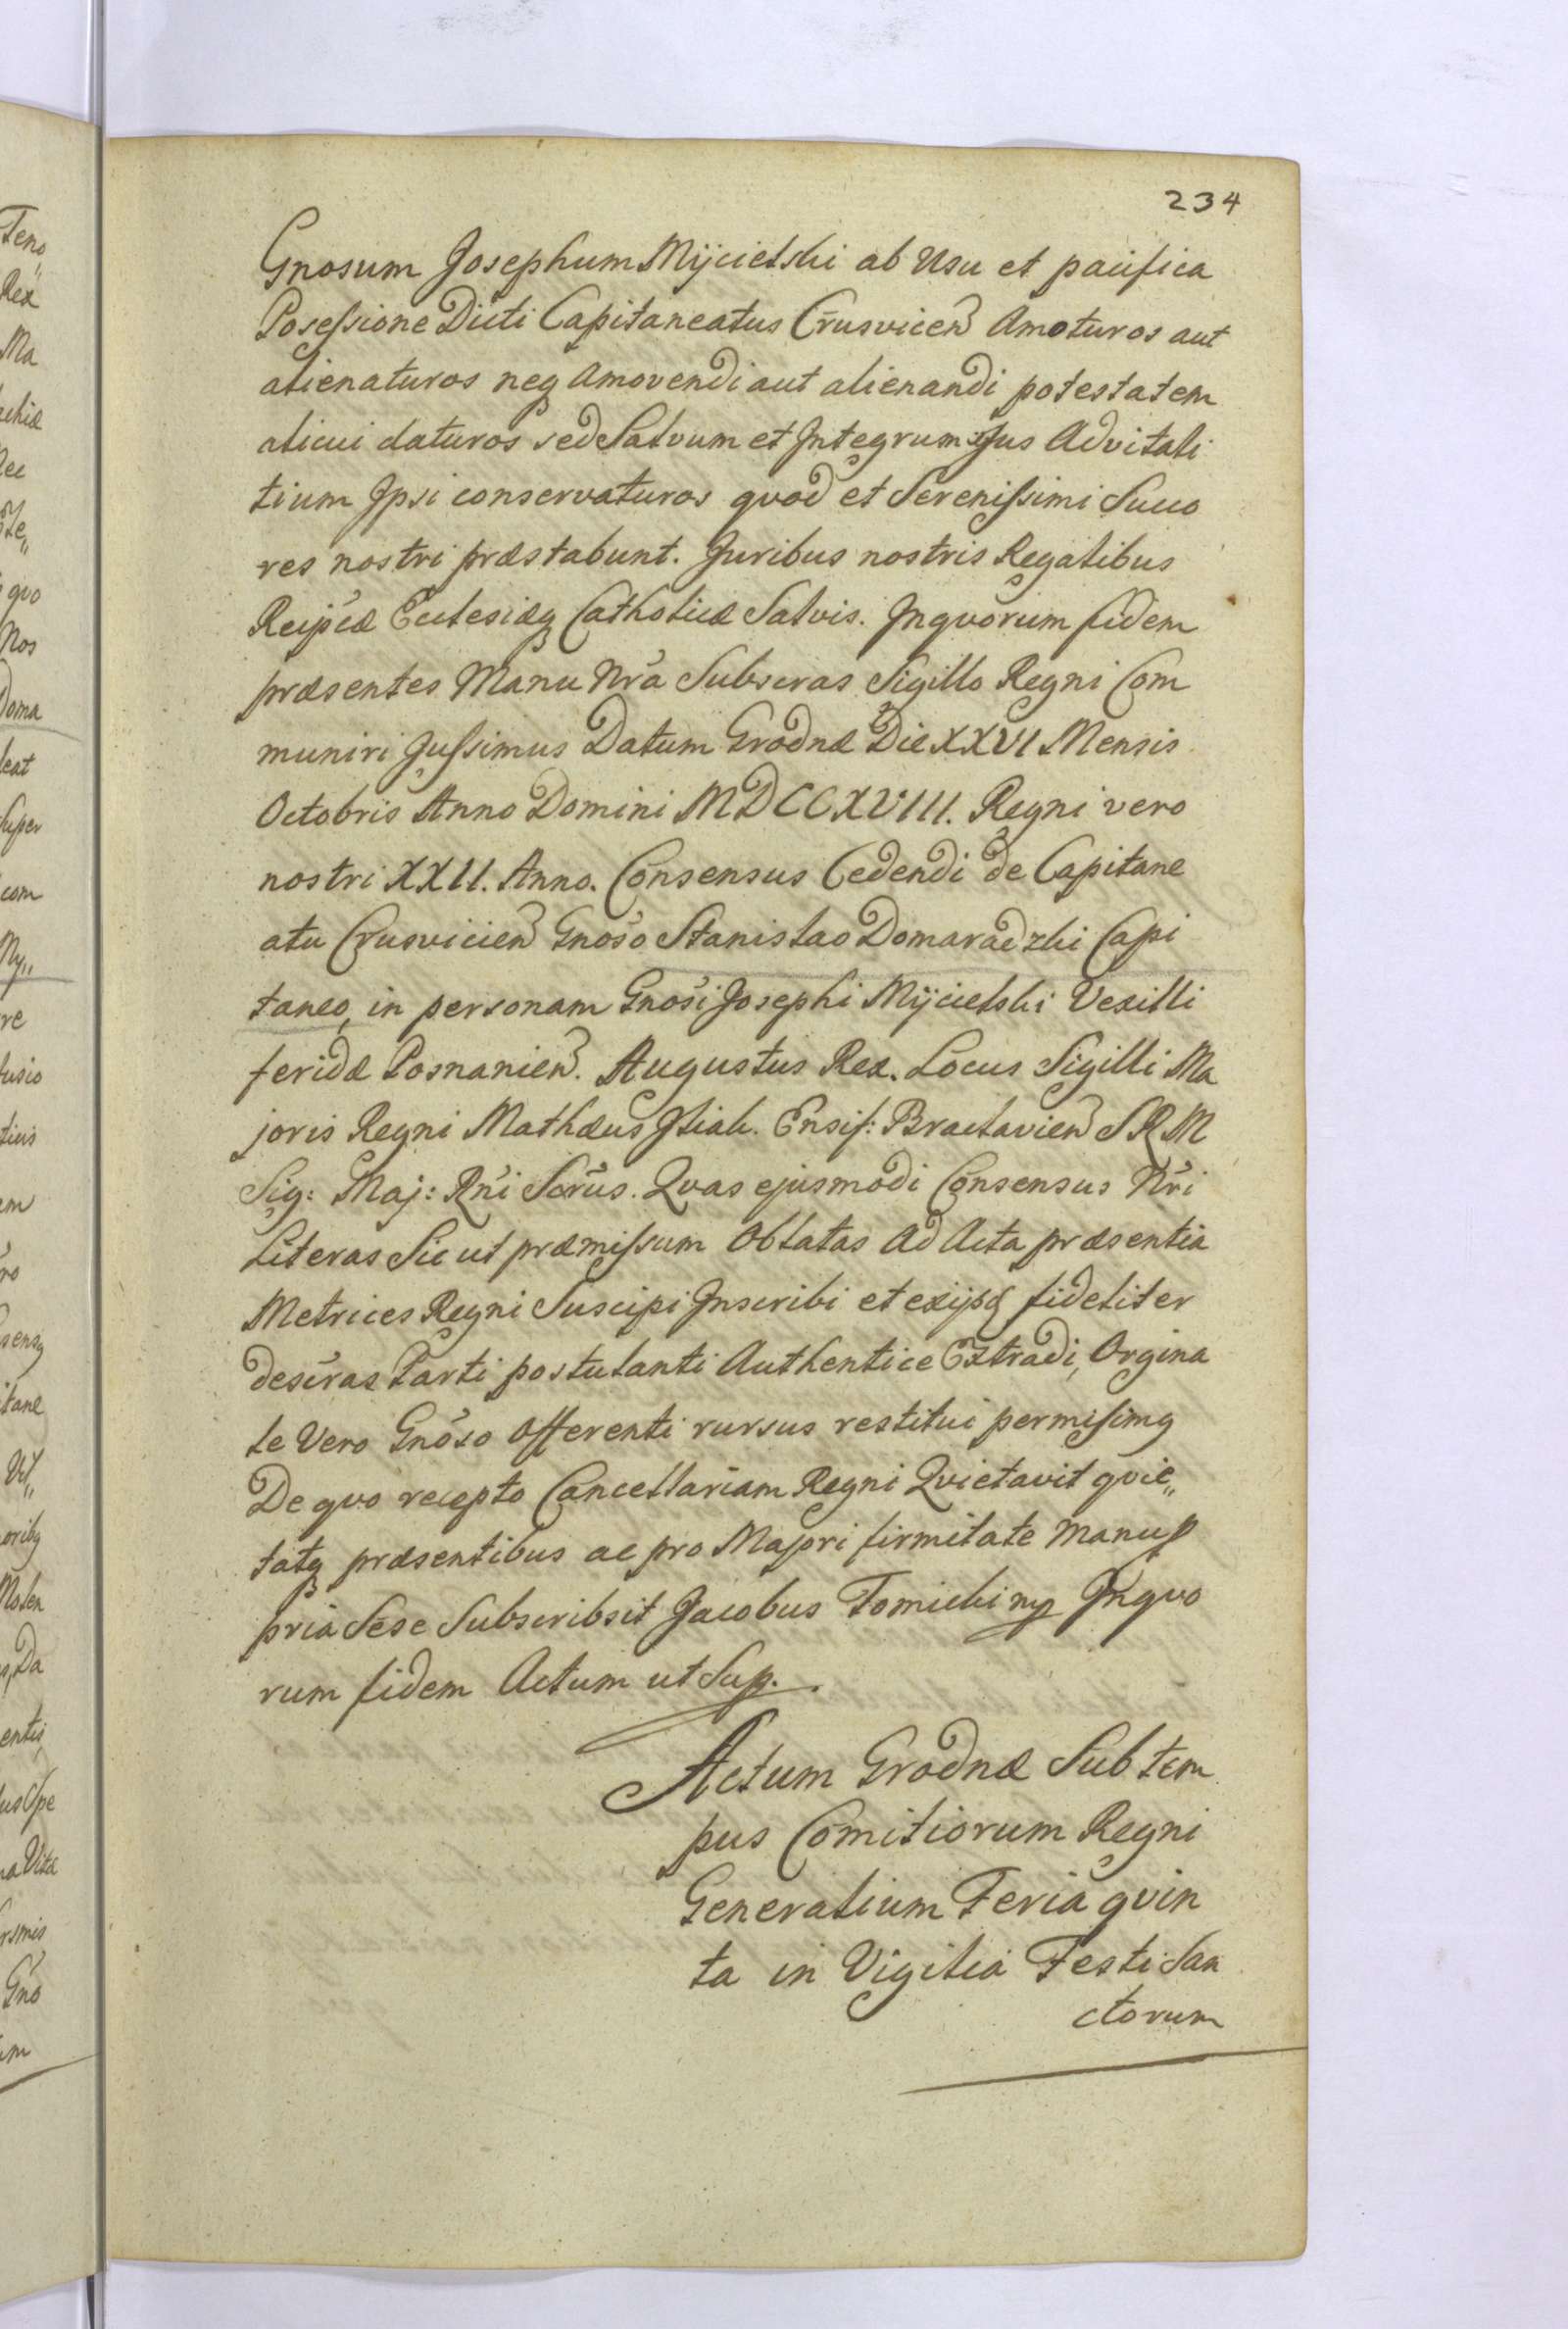 234
Gnosum Josephum Mÿcielski ab Usu et pacifica
Posessione Dicti Capitaneatus Crusvicen Amoturos aut
alienaturos neq Amovendi aut alienandi potestatem
alicui daturos sed Salvum et Integrum Jus Advitali
tium Ipsi conservaturos qvod et Serenissimi Succo
res nostri præstabunt. Juribus nostris Regalibus
Reipcæ Eclesiæq Catholicæ Salvis. Inqvorum fidem
præsentes Manu Nrã Subscras Sigillo Regni Com
muniri Jussimus Datum Grodnæ Die XXVI Mensis
Octobris Anno Domini MDCCXVIII. Regni vero
nostri XXII. Anno. Consensus Cedendi de Capitane
atu Crusvicien Gnoso Stanislao Domaradzki Capi
taneo, in personam Gnosi Josephi Mÿcielski Vexilli
feridæ Posnanien. Augustus Rex. Locus Sigilli Ma
joris Regni Mathæus Ilial. Ensif: Braclavien S R M
Sig: Maj: Rni Scrus. Qvas ejusmodi Consensus Nri
Literas Sic ut præmissum Oblatas Ad Acta præsentia
Metrices Regni Suscipi Inscribi et exijsq fideliter
descras Parti postulanti Authentice Extradi, Orgina
le Vero Gnoso Offerenti rursus restitui permisimq
De qvo recepto Cancellariam Regni Qvietavit qvie„
tatq præsentibus ac pro Majori firmitate Manu p
pria Sese Subscribsit Jacobus Tomicki mp Inqvo
rum fidem Actum ut Sup.
Actum Grodnæ Sub tem
pus Comitiorum Regni
Generalium Feria qvin
ta in Vigilia Festi San
ctorum